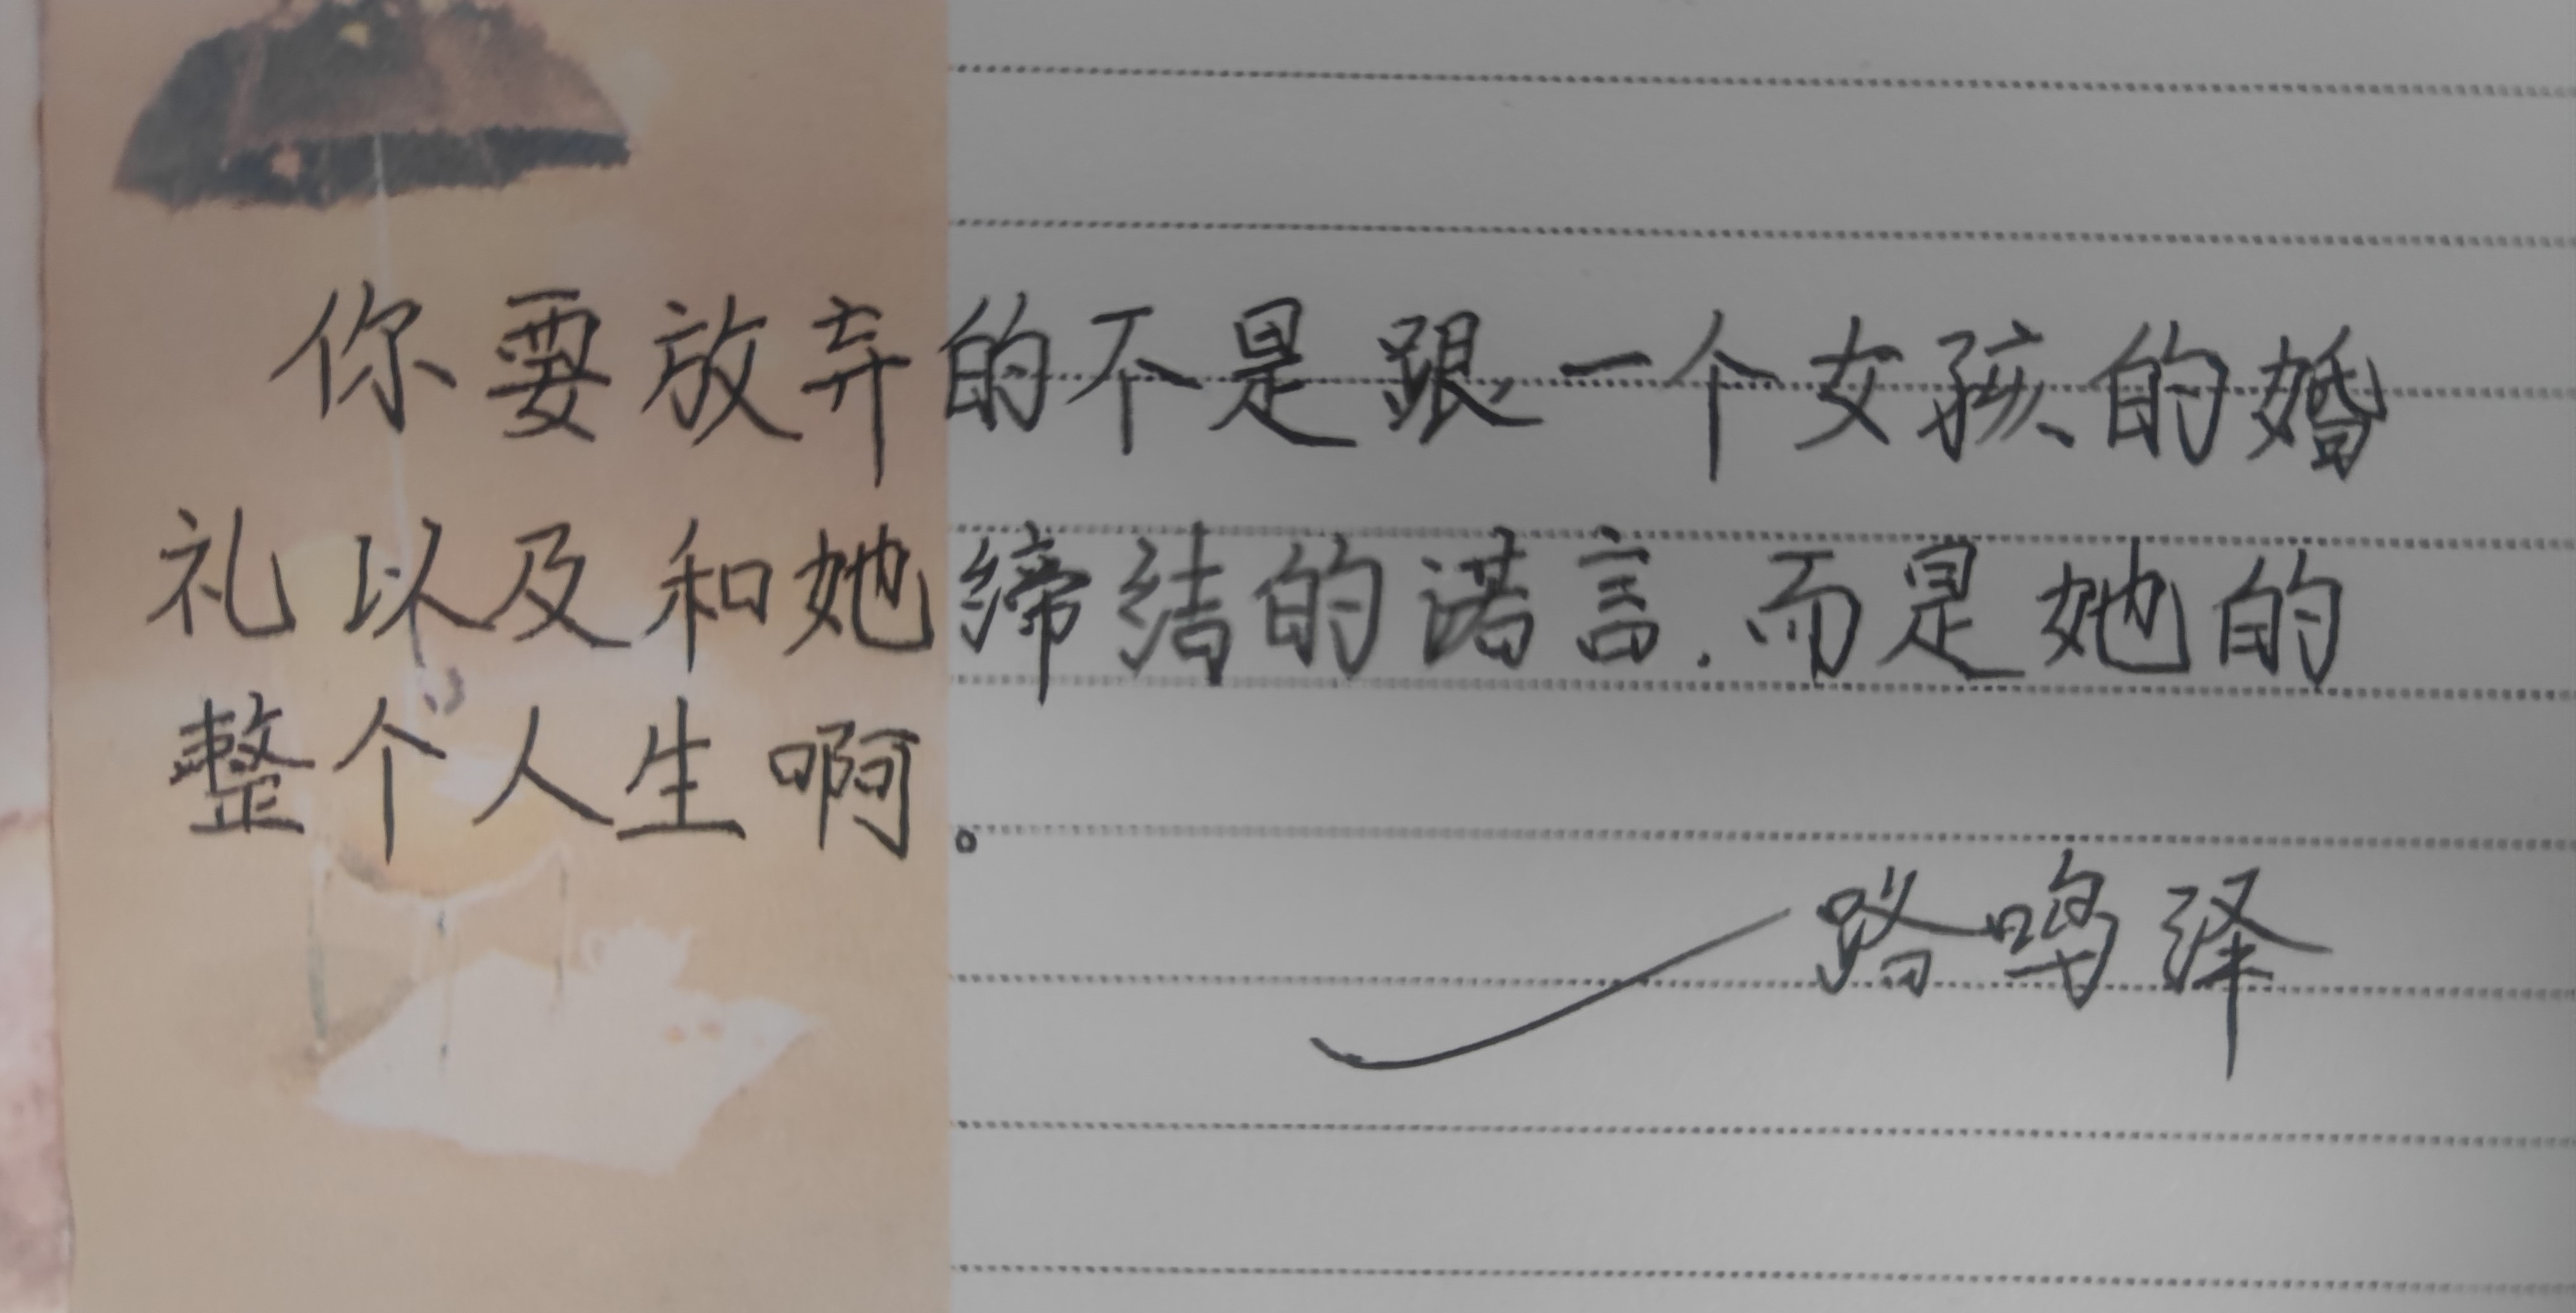 你要放弃的不是跟一个女孩的婚
礼以及和她缔结的诺言.而是她的
整个人生啊。
路鸣泽